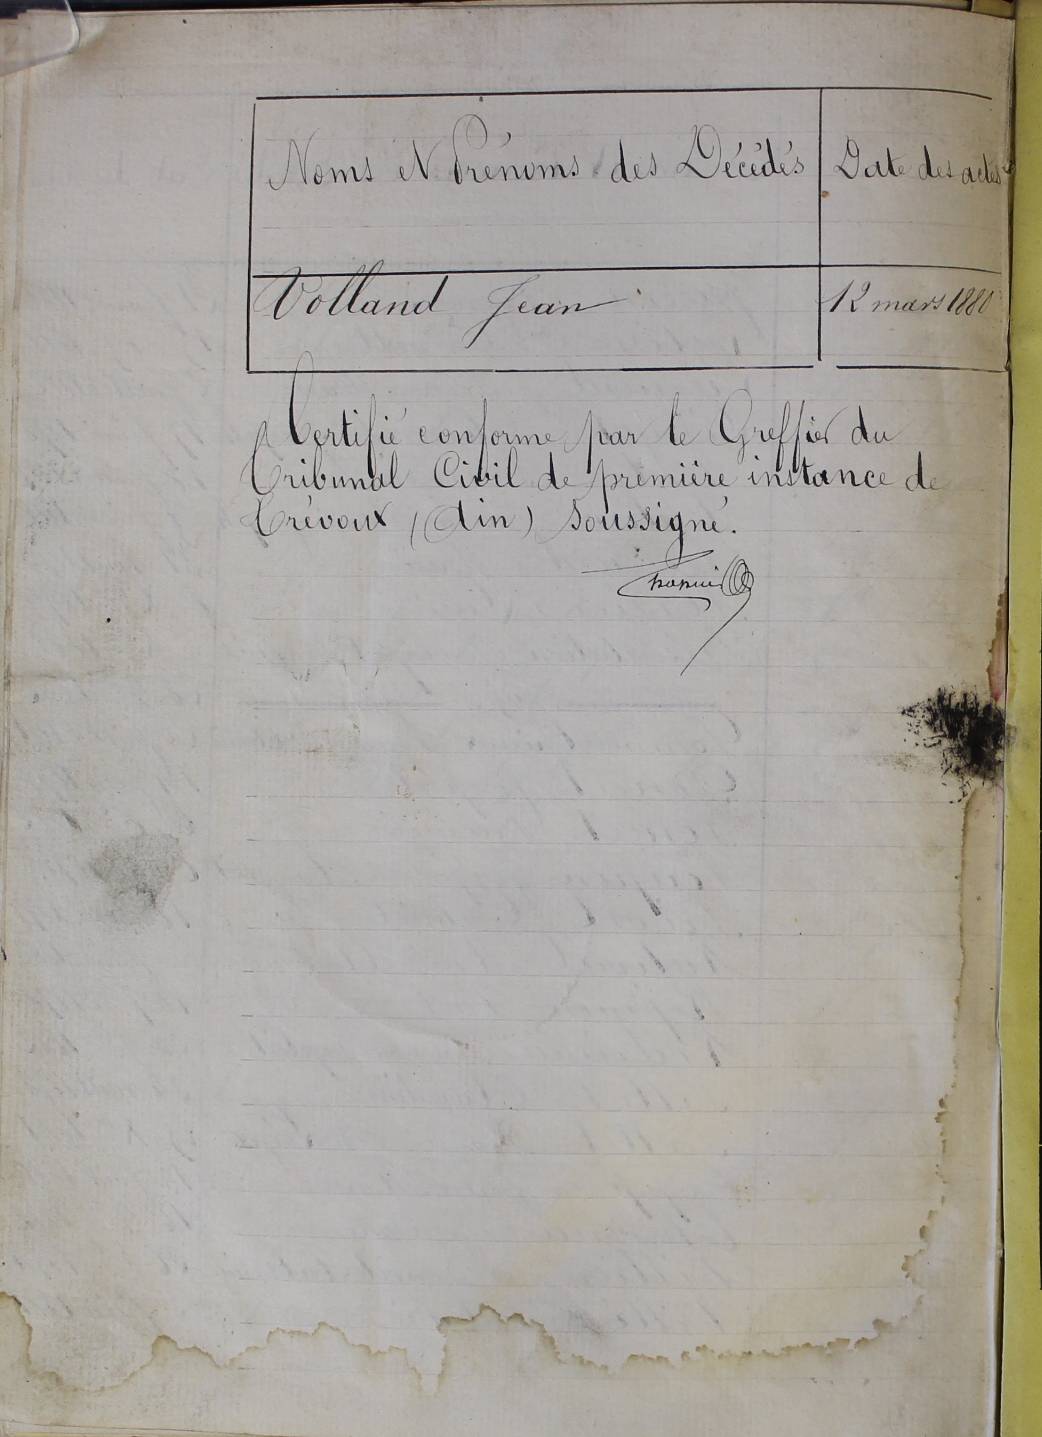 Noms et Prénoms des Décédés Date des actes
Volland Jean 12 mars 1880
Certifié conforme par le Greffier du
Tribunal Civil de première instance de
Trévoux (Ain) soussigné.